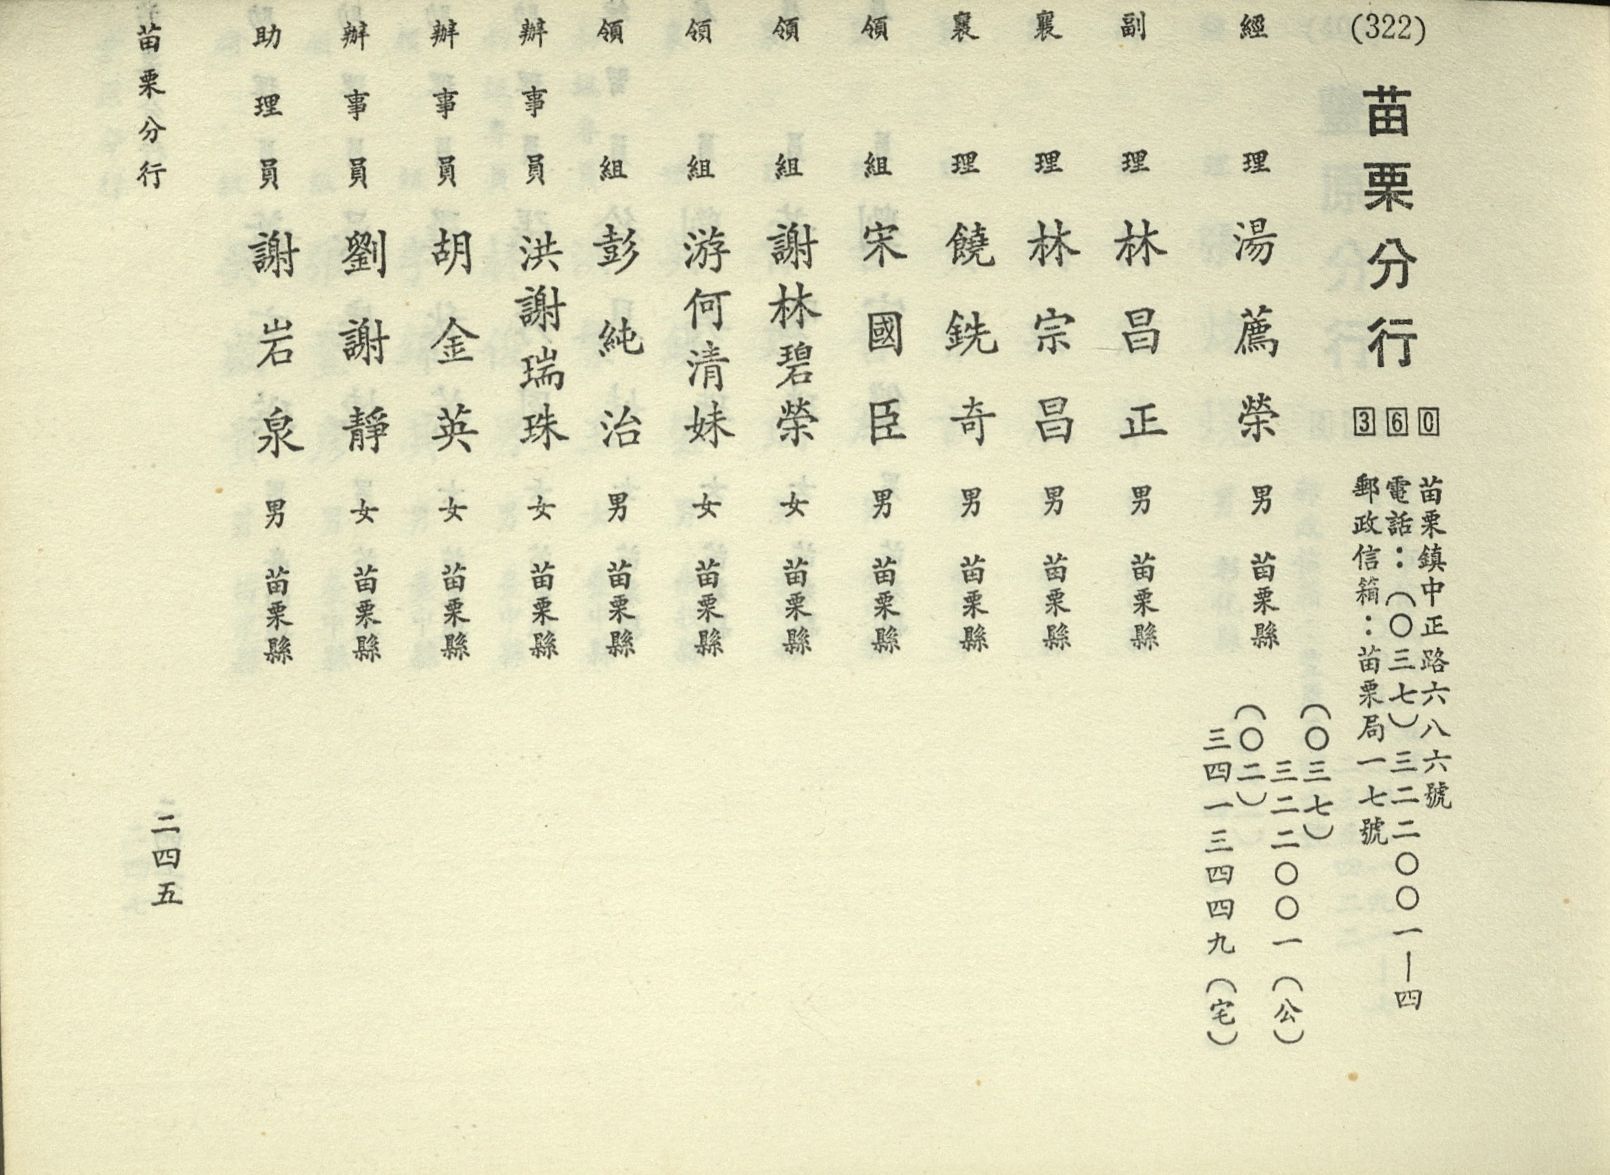 (322)
苗栗分行
360
苗栗鎮中正路六八六號
電話：（〇三七）三二二〇〇一—四
郵政信箱：苗栗局一七號
經理 湯薦榮 男 苗栗縣
（〇三七）
三二二〇〇一（公）
（〇二）
三四一三四四九（宅）
副理 林昌正 男 苗栗縣
襄理 林宗昌 男 苗栗縣
襄理 饒銑奇 男 苗栗縣
領組 宋國臣 男 苗栗縣
領組 謝林碧榮 女 苗栗縣
領組 游何清妹 女 苗栗縣
領組 彭純治 男 苗栗縣
辦事員 洪謝瑞珠 女 苗栗縣
辦事員 胡金英 女 苗栗縣
辦事員 劉謝靜 女 苗栗縣
助理員 謝岩泉 男 苗栗縣
苗栗分行
二四五